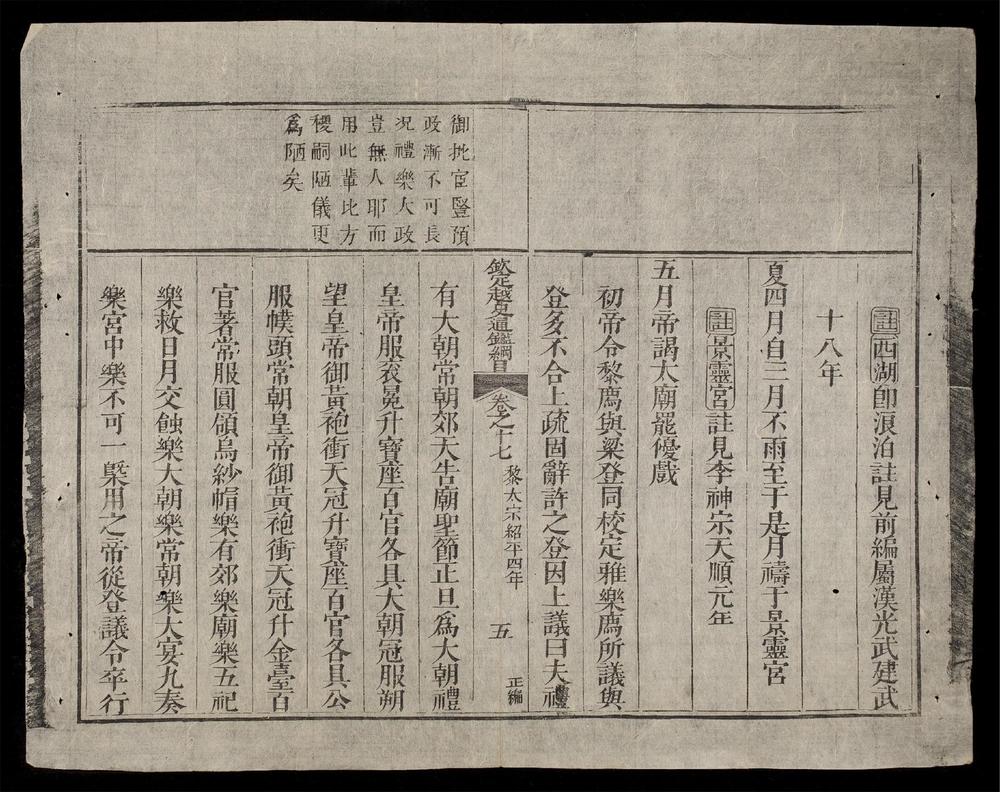 註西湖卽浪泊註見前編屬漢光武建武
十八年
夏四月自三月不雨至于是月禱于景靈宮
註景靈宮註見李神宗天順元年
五月帝謁太廟罷優戲
初帝令黎廌與梁登同校定雅樂廌所議與
登多不合上疏固辭許之登因上議曰夫禮
欽定越史通鑑綱目 卷之十七 黎太宗紹平四年 五 正編
御批宦豎預
政漸不可長
况禮樂大政
豈無人耶而
用此輩比方
稷嗣陋儀更
爲陋矣
有大朝常朝郊天告廟聖節正旦爲大朝禮
皇帝服衮冕升寶座百官各具大朝冠服朔
望皇帝御黃袍衝天冠升寶座百官各具公
服幞頭常朝皇帝御黃袍衝天冠升金臺百
官著常服圓領烏紗帽樂有郊樂廟樂五祀
樂救日月交蝕樂大朝樂常朝樂大宴九奏
樂宮中樂不可一槩用之帝從登議令卒行